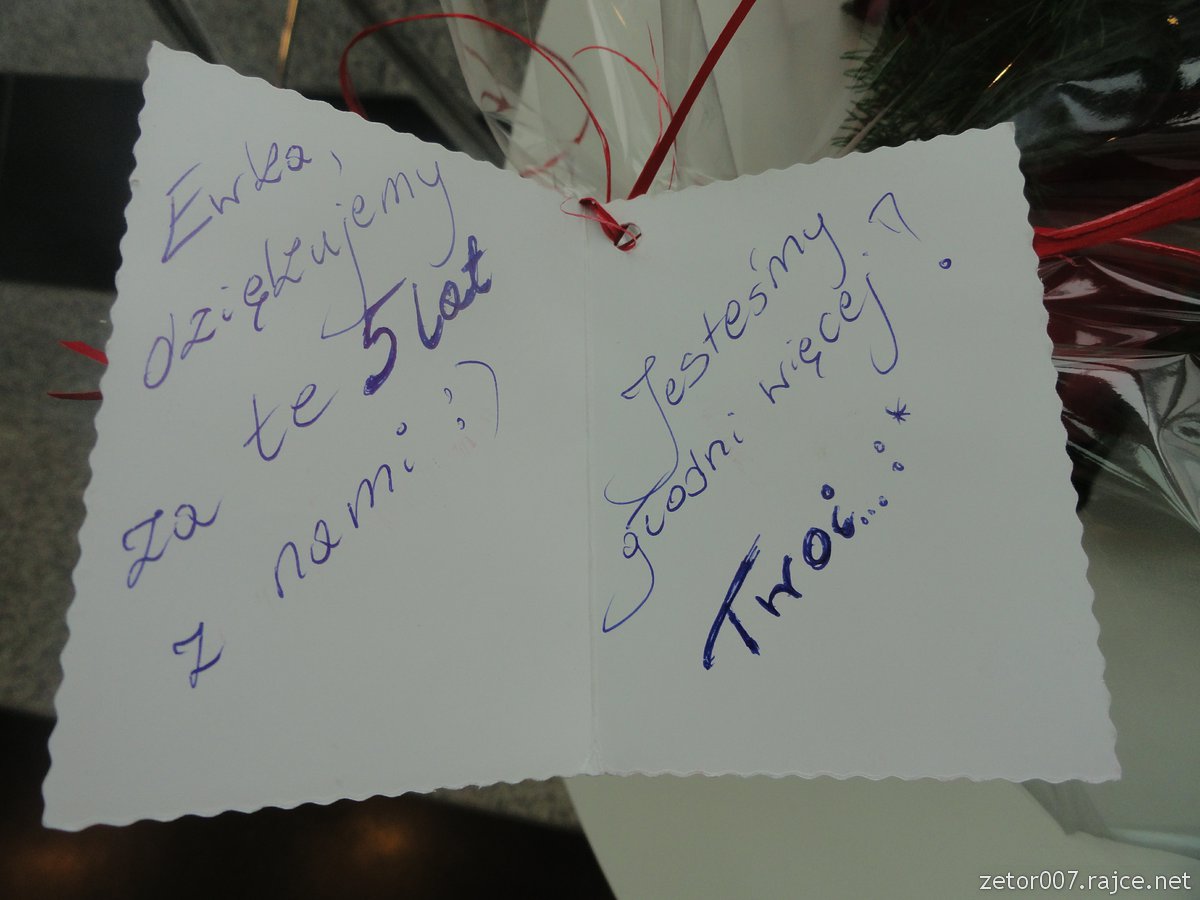 Ewka,
dziękujemy
za te 5 lat
z nami :)
Jesteśmy
głodni więcej!
Twoi...:*
zetor007.rajce.net